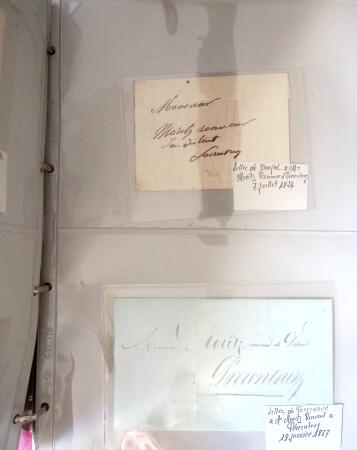 Monsieur
Moritz receveur
du district
Porrentruy
Lettre de Bonfol a Mr
Moritz Receveur a Porrentruy
7 juillet 18
Monsieur Moritz receveur du District
Porrentruy
Lettre de Porrentruy
a Mr Moritz Receveur a
Porrentruy
19 janvier 1857